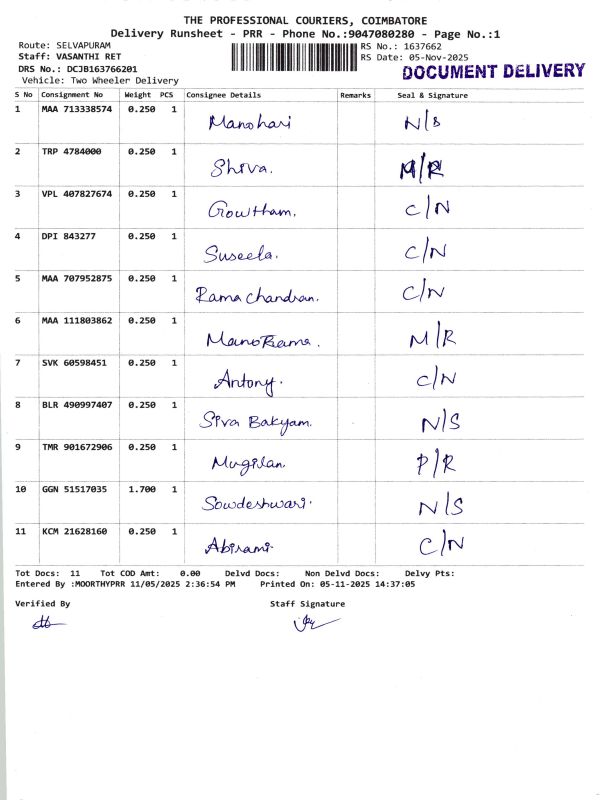 THE PROFESSIONAL COURIERS, COIMBATORE
Delivery Runsheet - PRR - Phone No.:9047080280 - Page No.:1
Route: SELVAPURAM
RS No.: 1637662
Staff: VASANTHI RET
RS Date: 05-Nov-2025
DRS No.: DCJB163766201
DOCUMENT DELIVERY
Vehicle: Two Wheeler Delivery
S No Consignment No Weight PCS Consignee Details Remarks Seal & Signature
1 MAA 713338574 0.250 1 Manohari N/S
2 TRP 4784000 0.250 1 Shiva. M/R
3 VPL 407827674 0.250 1 Gowtham. C/N
4 DPI 843277 0.250 1 Suseela. C/N
5 MAA 707952875 0.250 1 Rama chandran. C/N
6 MAA 111803862 0.250 1 ManoRama. M/R
7 SVK 60598451 0.250 1 Antony. C/N
8 BLR 490997407 0.250 1 Siva Bakyam. N/S
9 TMR 901672906 0.250 1 Mugilan. P/R
10 GGN 51517035 1.700 1 Sowdeshwari. N/S
11 KCM 21628160 0.250 1 Abirami. C/N
Tot Docs: 11 Tot COD Amt: 0.00 Delvd Docs: Non Delvd Docs: Delvy Pts:
Entered By :MOORTHYPRR 11/05/2025 2:36:54 PM Printed On: 05-11-2025 14:37:05
Verified By Staff Signature